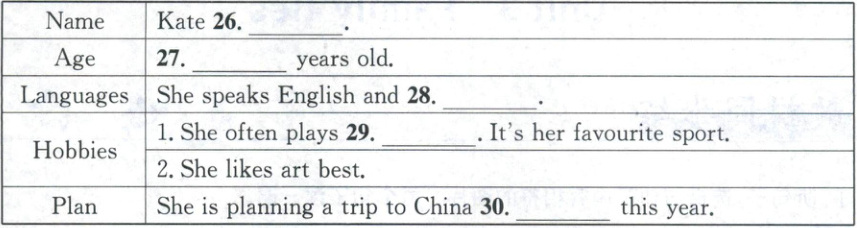 Name Kate 26. ________.
Age 27. ________ years old.
Languages She speaks English and 28. ________.
Hobbies 1. She often plays 29. ________. It's her favourite sport.
2. She likes art best.
Plan She is planning a trip to China 30. ________ this year.